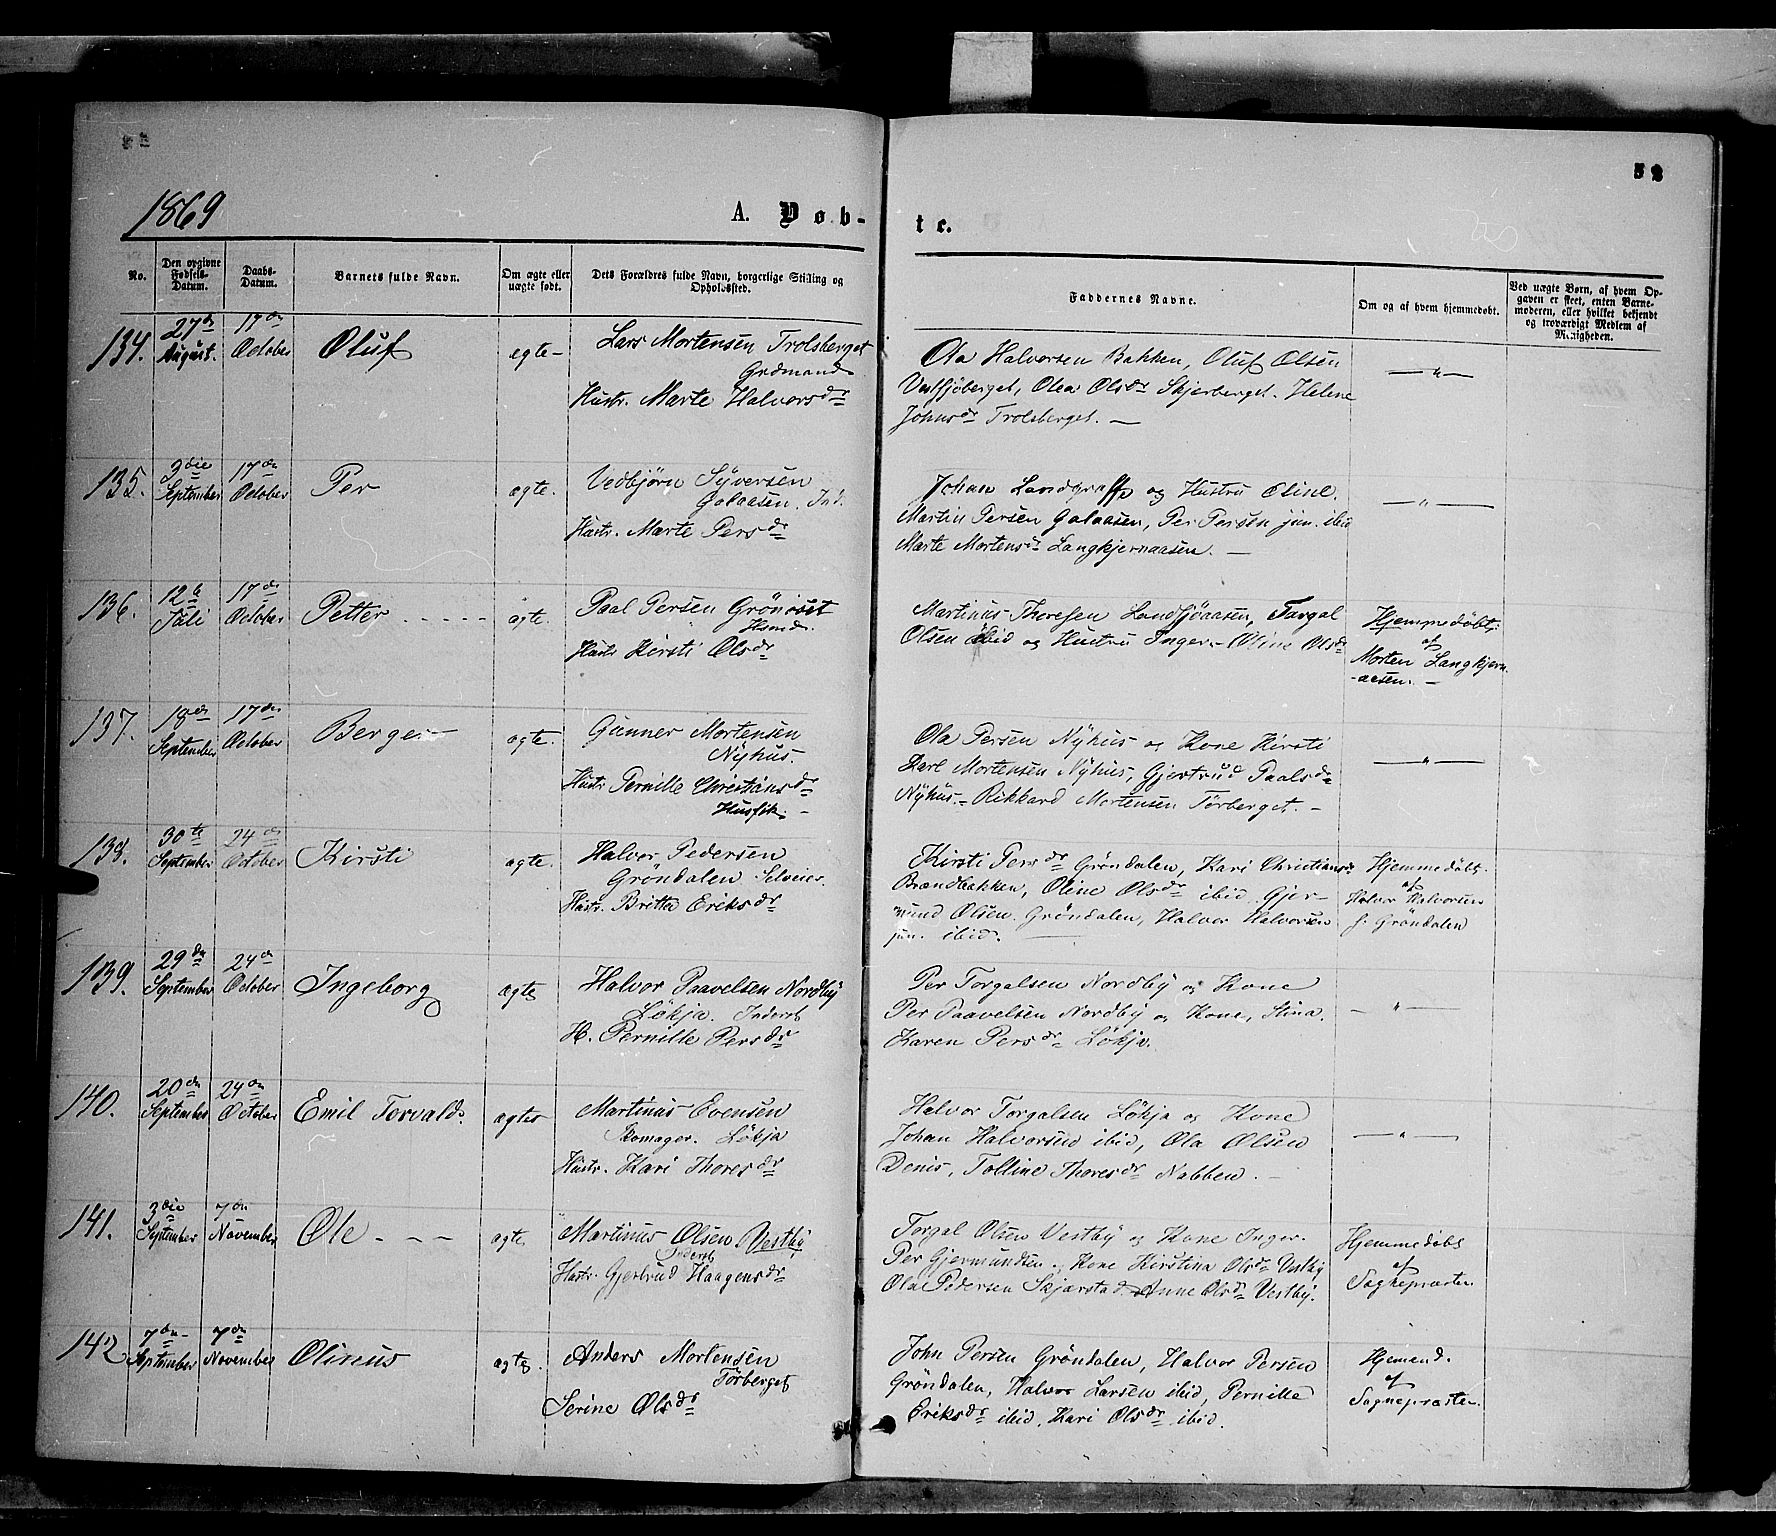 52
1869
A. Døb-
te.
No.
Den opgivne Fødsels-Datum.
Daabs-Datum.
Barnets fulde Navn.
Om ægte eller uægte født.
Dets Forældres fulde Navn, borgerlige Stilling og Opholdssted.
Faddernes Navne.
Om og af hvem hjemmedøbt.
Ved uægte Børn, af hvem Opgaven er skeet, enten Barnemoderen, eller hvilket bekjendt og troværdigt Medlem af Menigheden.
134. 27de August. 17de October Oluf egte-
Lars Mortensen Trolsberget
Grdmand
Hustr. Marte Halvorsdr
Ola Halvorsen Bakken, Oluf Olsen
Olea Olsdr Skjerberget. Helene
Johnsdr Trolsberget. —
— " —
135. 3die September 17de October Per ægte.
Vedbjørn Syversen
Galaasen. Ind.
Hustr. Marte Persdr
Johan Landgraff og Hustru Eline.
Martin Persen Galaasen, Per Persen jun. ibid
Marte Mortensdr Langkjernaasen. —
— " —
136. 12te Juli 17de October Petter - - - - - ægte.
Paal Persen Grönoset
Husmd.
Hustr Kirsti Olsdr
Martinus Thoresen Landsjöaasen, Torgal
Olsen ibid og Hustru Inger. - Oline Olsdr
Hjemmedøbt
af
Morten Langkjern-
-aasen. —
137. 18de September 17de October Berger ægte.
Gunner Mortensen
Nyhus.
Hustr Pernille Christiansdr
Husfsk. -
Ola Persen Nyhus og Kone Kirsti
Karl Mortensen Nyhus, Gjertrud Paalsdr
Nyhus. - Rikkard Mortensen Törberget. -
— " —
138. 30te September 24de October Kirsti ægte.
Halvor Pedersen
Gröndalen Selveier.
Hustr. Britta Eriksdr
Kirsti Persdr Gröndalen, Kari Christiansdr
Brændbakken, Oline Olsdr ibid. Gjer-
mund Olsen Gröndalen, Halvor Halvorsen
jun. ibid. —
Hjemmedøbt.
af
Halvor Halvorsen
Gröndalen
139. 29de September 24de October Ingeborg ægte
Halvor Paavelsen Nordby
Lökja. Inderst
H. Pernille Persdr
Per Torgalsen Nordby og Kone
Per Paavelsen Nordby og Kone, Stina.
Karen Persdr Lökja.
— " —
140. 20de September 24de October Emil Torvald. ægte
Martinus Evensen
Skomager. Lökja
Hustr. Kari Thoresdr
Halvor Torgalsen Lökja og Kone
Johan Halvorsen ibid, Ola Olsen
Denis, Tolline Thoresdr Nabben. -
— " —
141. 3die September 7de November Ole - - - ægte
Martinus Olsen Vestby
Inderst
Hustr. Gjertrud Haagensdr
Torgal Olsen Vestby og Kone Inger.
Per Gjermundsen og Kone Kirstina Olsdr Vestby
Ola Pedersen Skjærstad. Anne Olsdr Vestby.
Hjemmedøbt
af
Sognepræsten
142 7de September 7de November Olinus ægte.
Anders Mortensen
Törberget
Serine Olsdr
John Persen Gröndalen, Halvor Persen
Gröndalen, Halvor Larsen ibid, Pernille
Eriksdr ibid, Kari Olsdr ibid.
Hjemmd.
af
Sognepræsten.